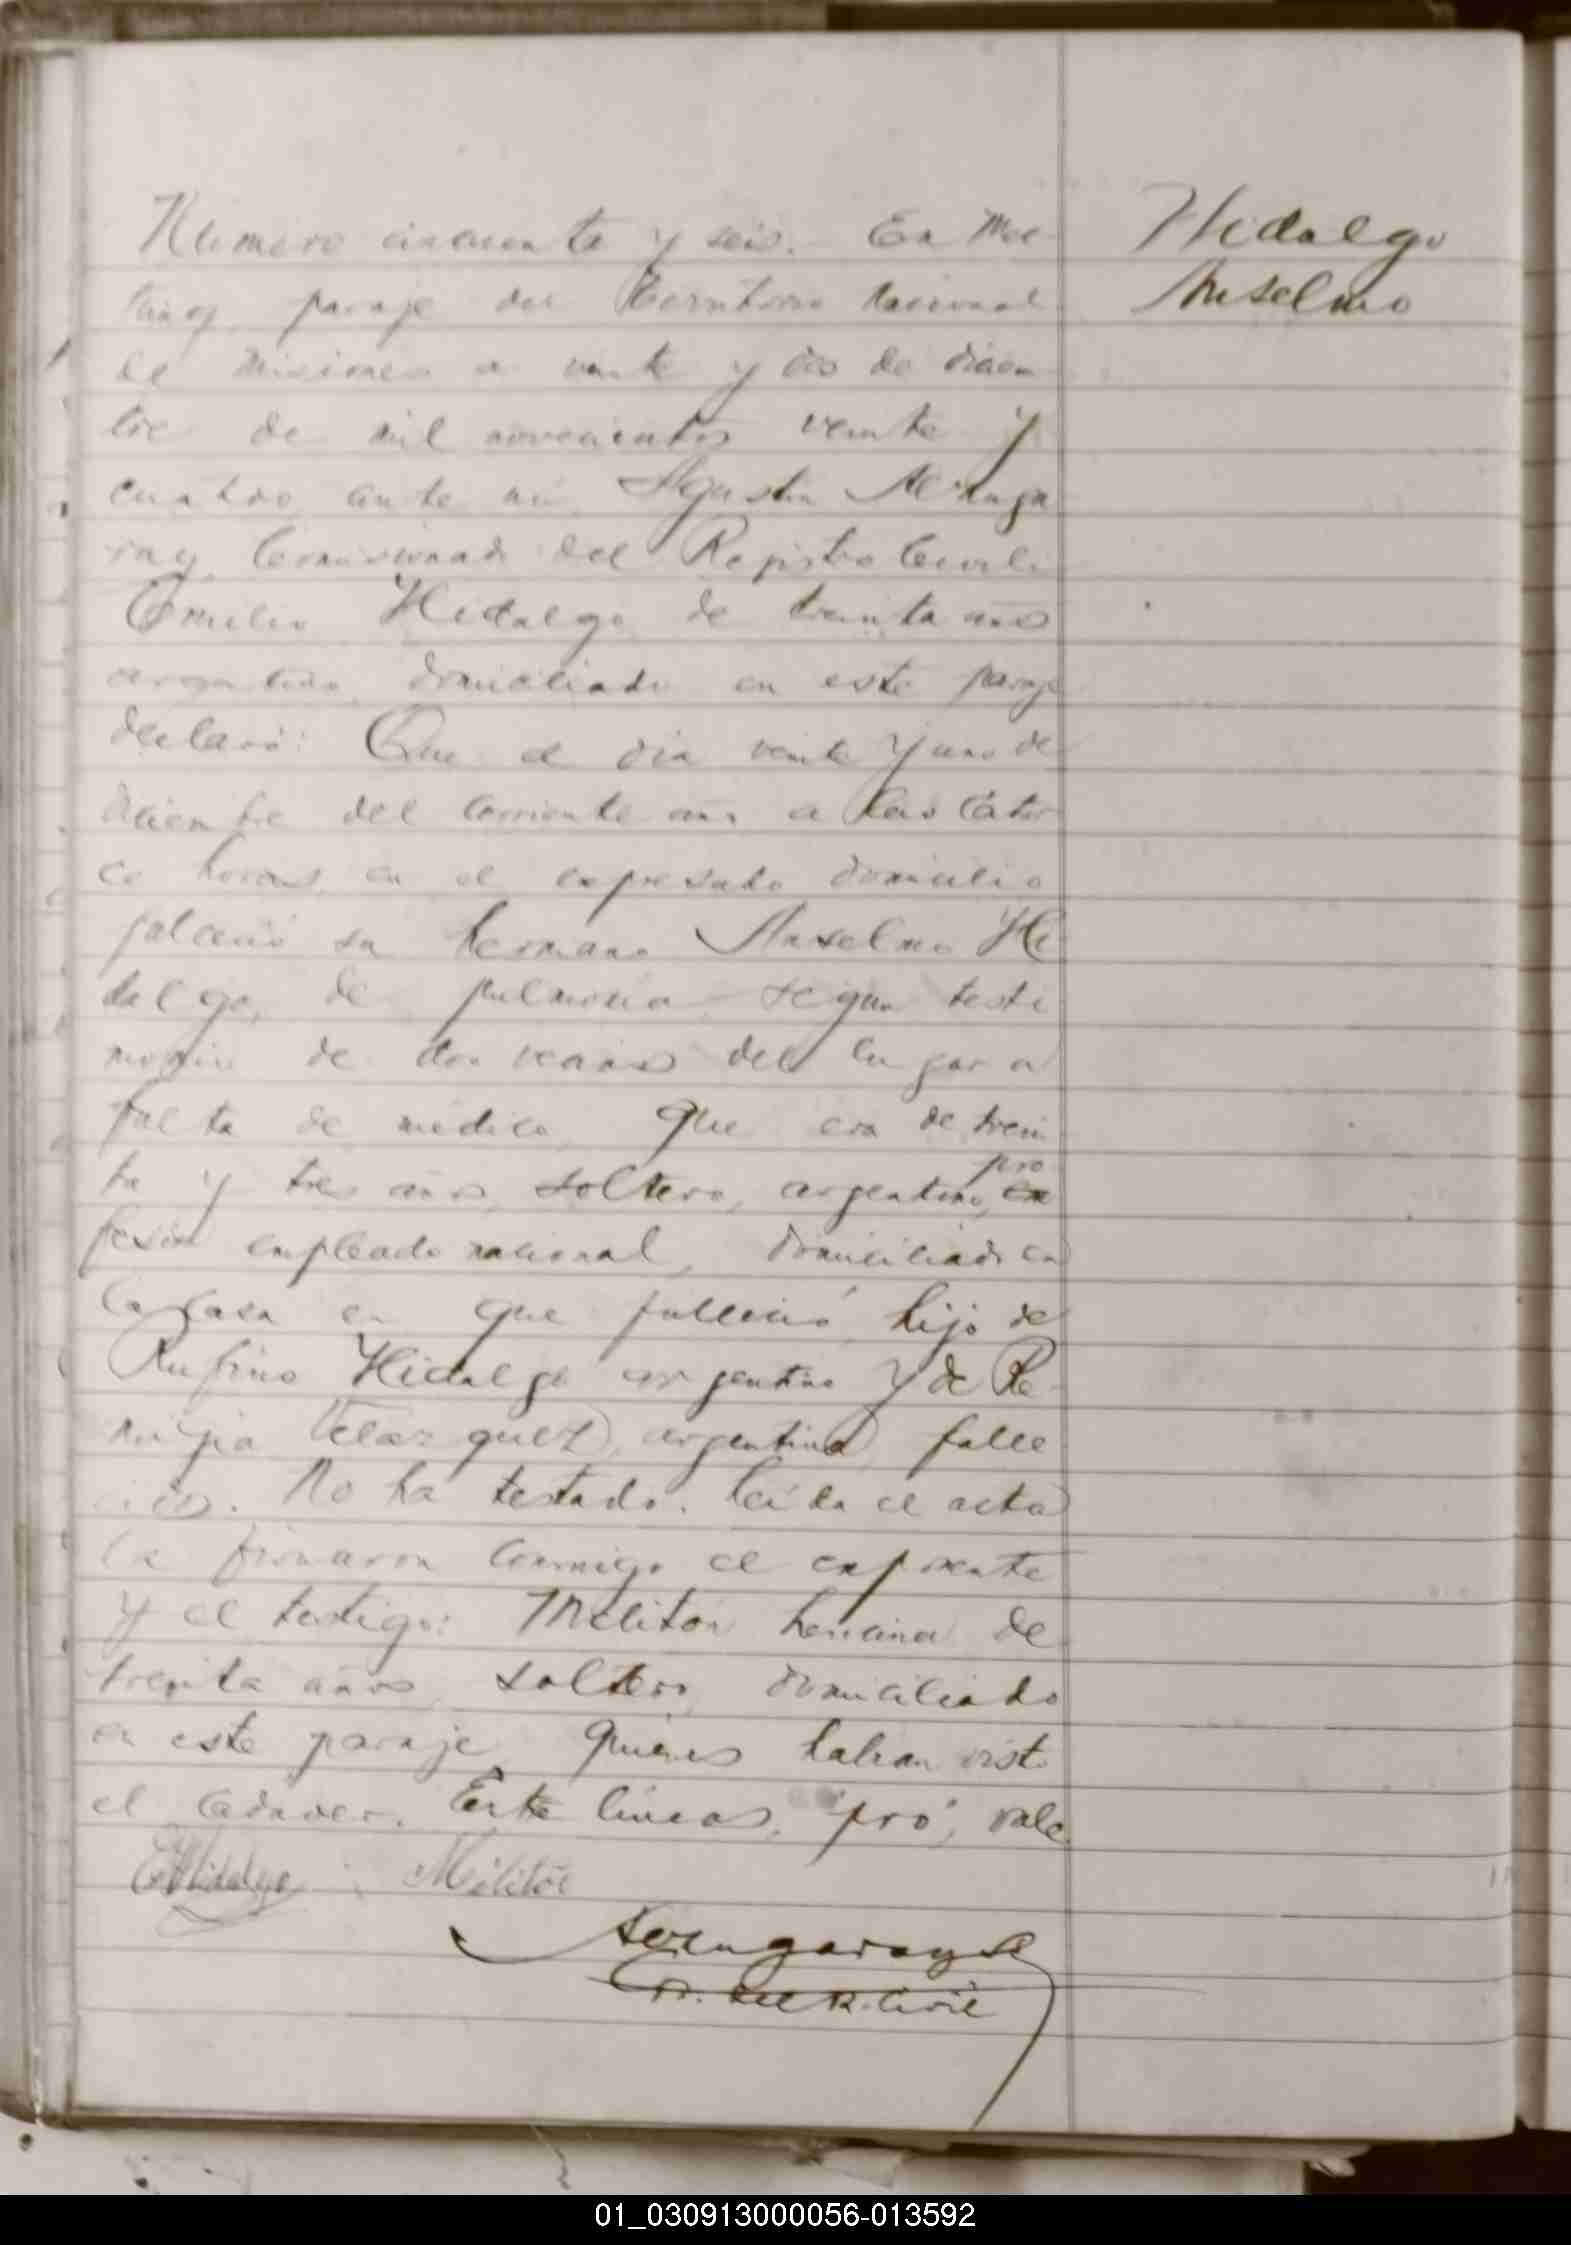 Hidalgo
Anselmo
Numero cincuenta y seis. En Mar
tires, paraje del Territorio Nacional
de Misiones a veinte y dos de diciem
bre de mil novecientos veinte y
cuatro, ante mi, Agustin
Comisionado del Registro Civil:
Emilio Hidalgo de treinta años
argentino, domiciliado en este paraje
declaró: Que el dia veinte y uno de
diciembre del corriente año a las cator
ce horas, en el expresado domicilio
falleció su hermano Anselmo Hi
dalgo, de pulmonia segun testi
monio de dos vecinos del lugar a
falta de medico, que era de trein
ta y tres años, soltero, argentino, pro
fesión empleado nacional, domiciliado en
la casa en que falleció, hijo de
Rufino Hidalgo argentino y de Re
migia Velazquez, argentina, falle
cidos. No ha testado. Leida el acta
la firmaron conmigo el exponente
y el testigo: Meliton de
treinta años, soltero, domiciliado
en este paraje, quienes habian visto
el cadaver. Entre lineas, "pro", vale
EHidalgo Militon
del R. Civil
01_030913000056-013592